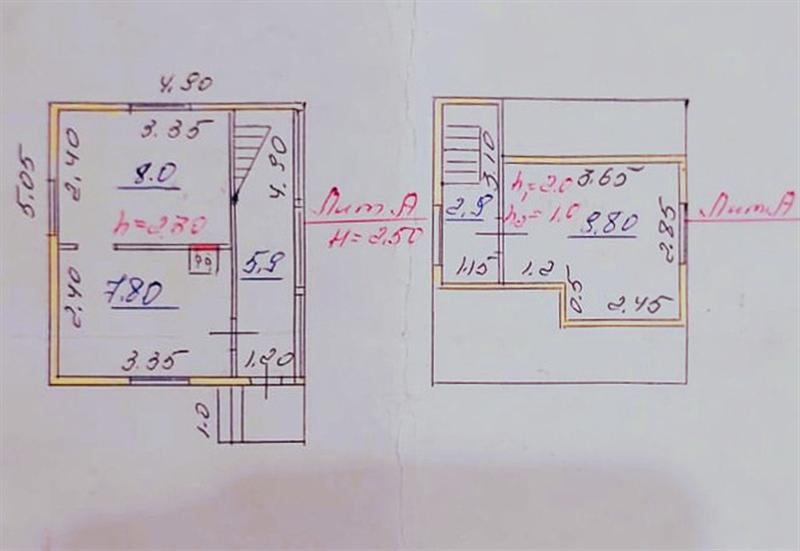 4.90
3.35
2.40
8.0
5.05
4.90
h=2.20
Лит.А
H=2.50
5.9
7.80
2.40
3.35
1.20
1.0
3.10
h₁=2.0
3.65
2.9
h₂=1.0
9.80
2.85
Лит.А
1.15
1.2
0.5
2.45